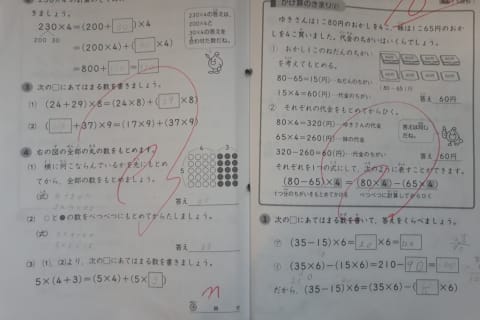 きましょう。
230×4=(200+30)×4
200 30
=(200×4)+(□×4)
=800+
230×4の答えは、
200×4と
30×4の答えを
合わせた数だね。
3 次の□にあてはまる数を書きましょう。
(1) (24+29)×8=(24×8)+(29×8)
(2) (□+37)×9=(17×9)+(37×9)
4 右の図の全部の丸の数をもとめます。
(1) 横に何こならんでいるかを先にもとめ
てから、全部の数をもとめましょう。
(式)
答え
4 3
5
(2) ○と●の数をべつべつにもとめてからたしましょう。
(式)
答え
(3) (1)、(2)より、次の□にあてはまる数を書きましょう。
5×(4+3)=(5×4)+(5×3)
かけ算のきまり
ゆきさんは1こ80円のおかしを4こ、妹は1こ65円のおか
しを4こ買いました。代金のちがいはいくらでしょう。
① おかし1このねだんのちがい
を考えてもとめる。
80-65=15(円)…ねだんのちがい
15×4=60(円)…代金のちがい
(80-65)円
答え 60円
② それぞれの代金をもとめてからひく。
80×4=320(円)…ゆきさんの代金
65×4=260(円)…妹の代金
320-260=60(円)…代金のちがい
答えは同じ
だね。
答え 60円
それぞれを1つの式にして、次のように表すことができます。
(80-65)×4=(80×4)-(65×4)
1つ分のちがいをもとめてかける べつべつに計算してからひく
1 次の□にあてはまる数を書いて、答えをくらべましょう。
㋐ (35-15)×6=20×6=
㋑ (35×6)-(15×6)=210-90=
だから、(35-15)×6=(35×6)-(□×6)